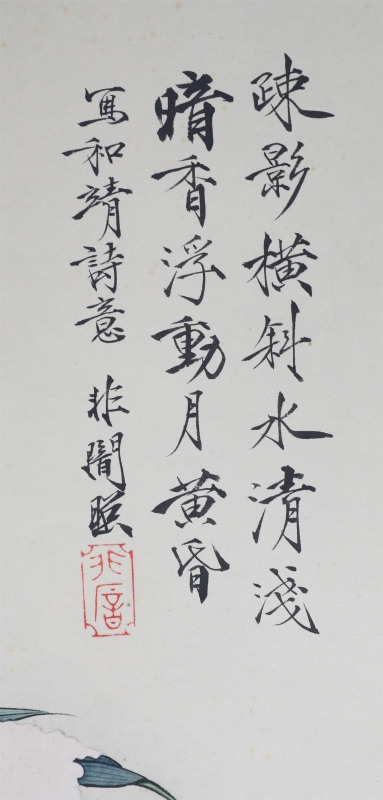 疎影橫斜水清淺
暗香浮動月黃昏
寫和靖詩意 非闇照
非闇